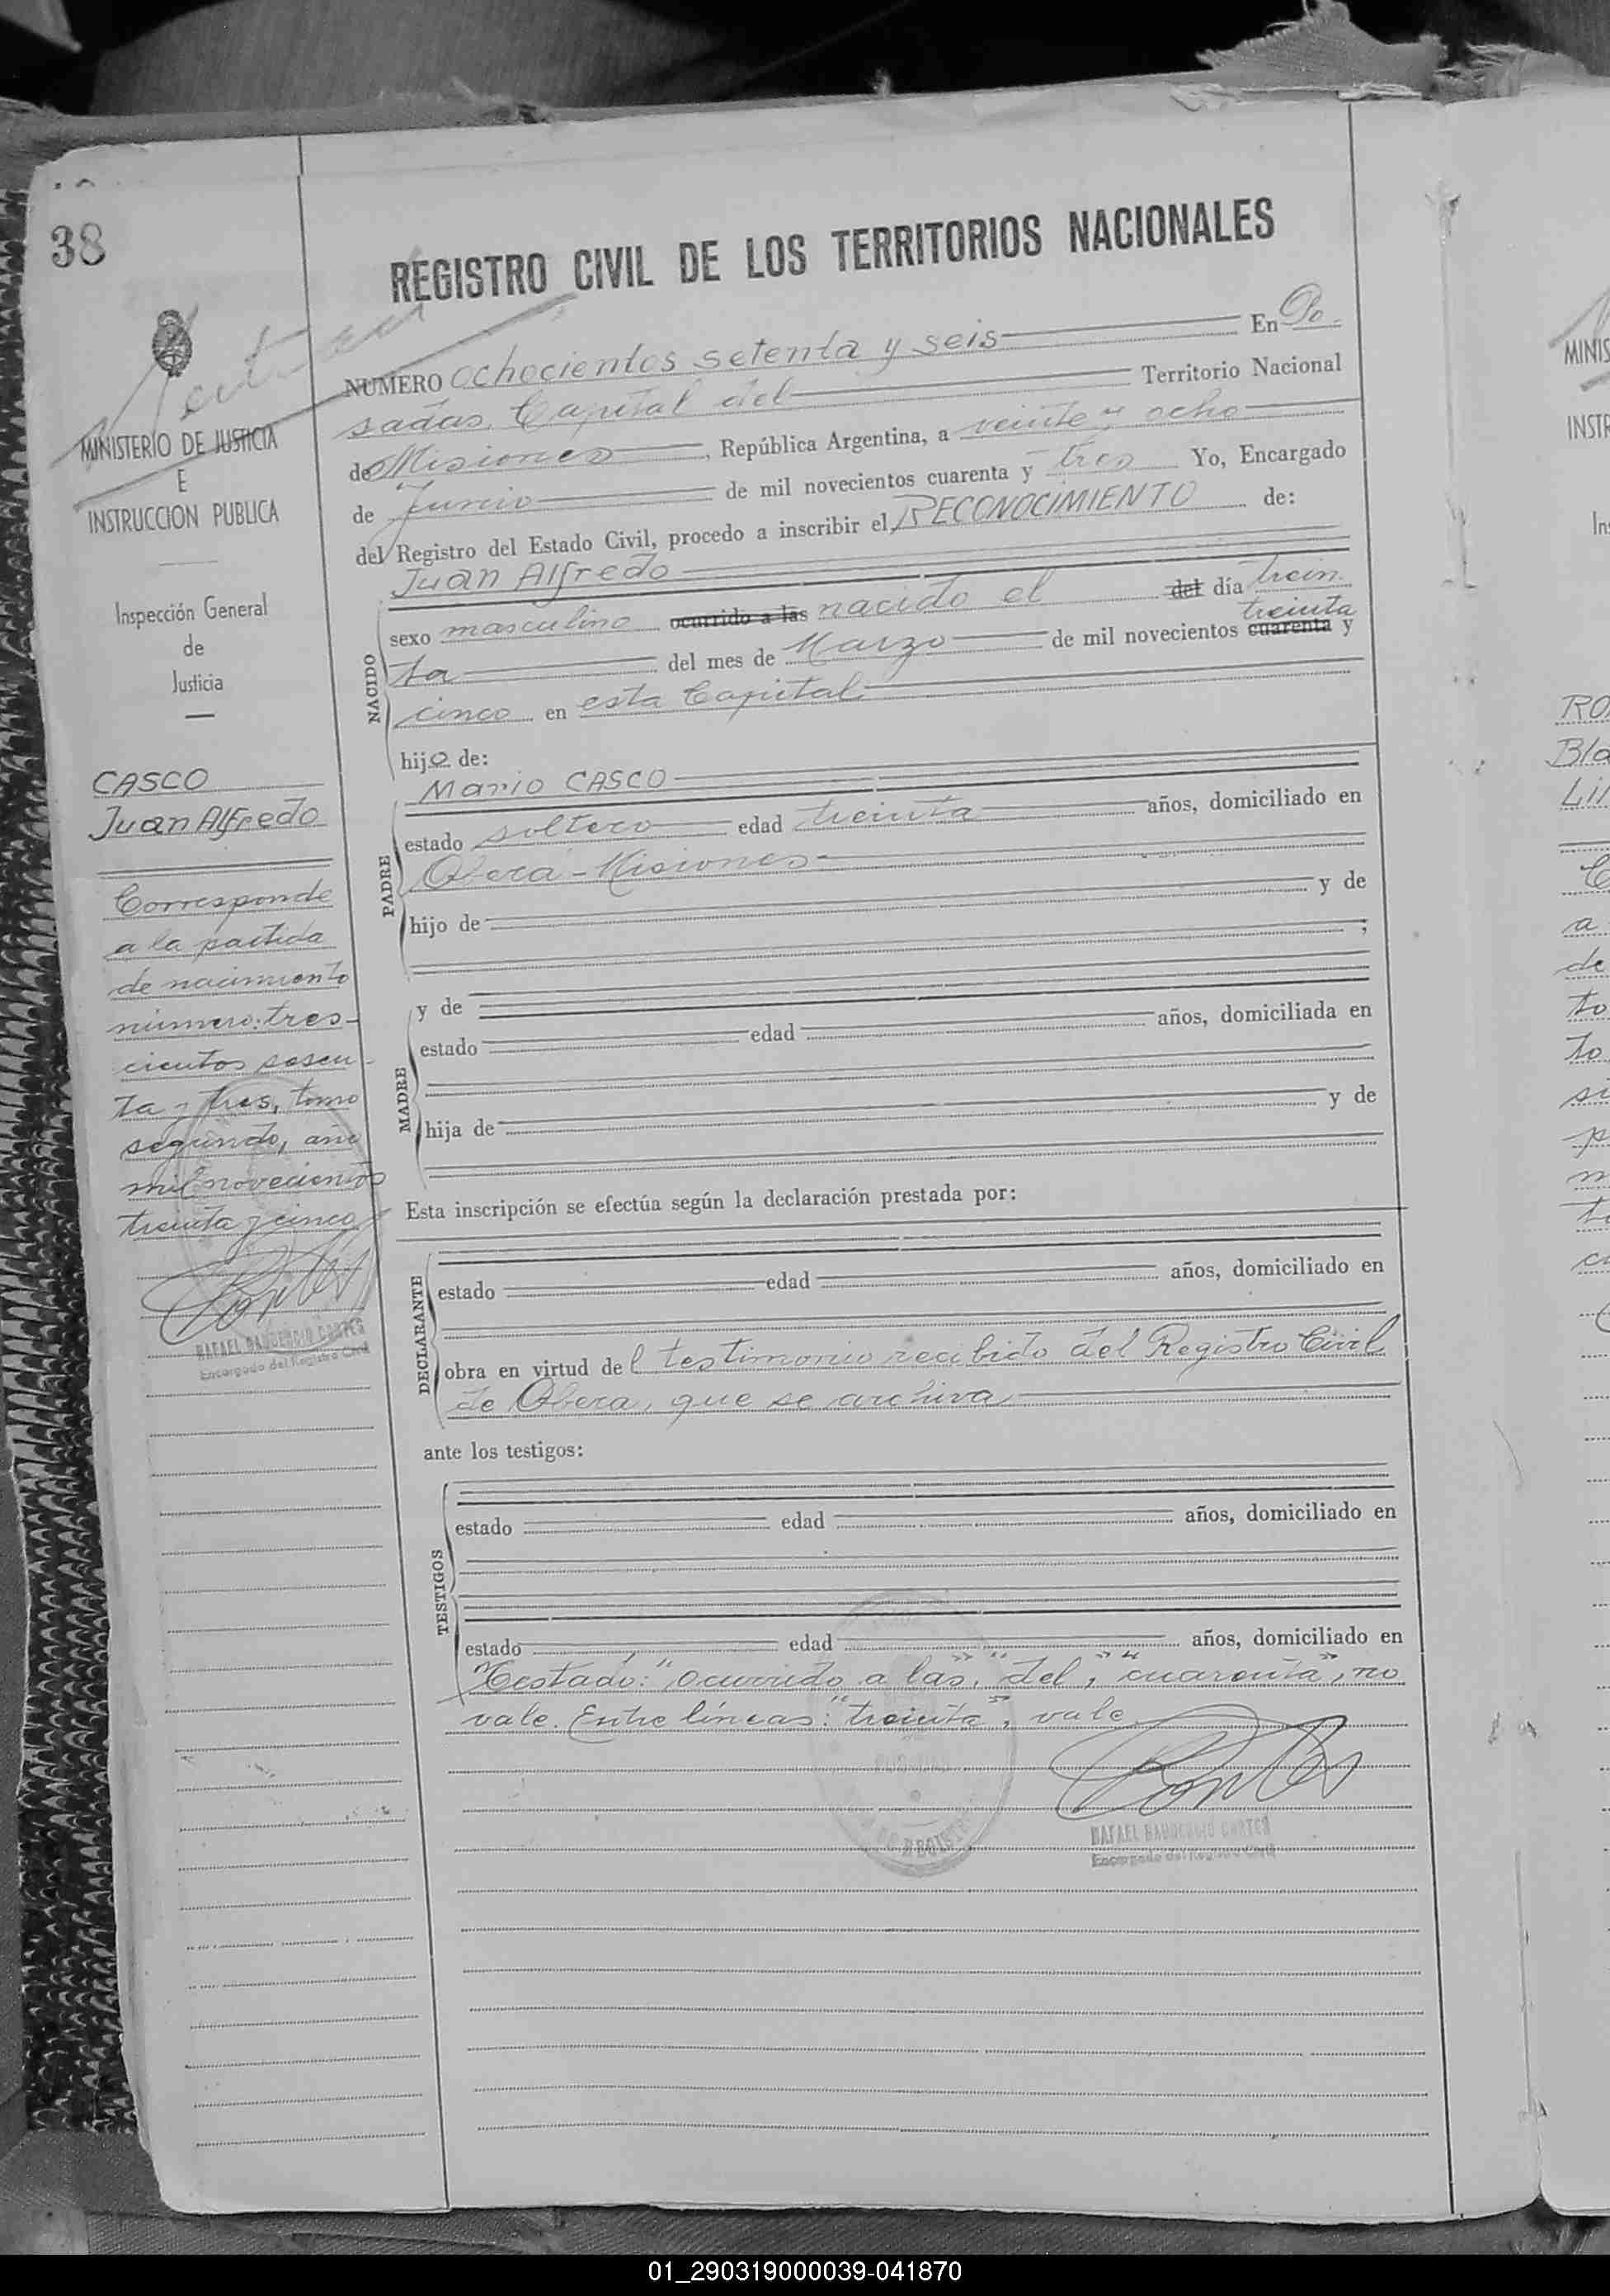 38
REGISTRO CIVIL DE LOS TERRITORIOS NACIONALES
NUMERO ochocientos setenta y seis En Po
sadas, Capital del Territorio Nacional
de Misiones, República Argentina, a veinte y ocho
de Junio de mil novecientos cuarenta y tres Yo, Encargado
del Registro del Estado Civil, procedo a inscribir el RECONOCIMIENTO de:
NACIDO
Juan Alfredo
sexo masculino ocurrido a las nacido el del día trein
treinta
ta del mes de Marzo de mil novecientos cuarenta y
cinco en esta Capital
hijo de:
PADRE
Mario CASCO
estado soltero edad treinta años, domiciliado en
Oberá - Misiones
hijo de y de
;
MADRE
y de
estado edad años, domiciliada en
hija de y de
Esta inscripción se efectúa según la declaración prestada por:
DECLARANTE
estado edad años, domiciliado en
obra en virtud del testimonio recibido del Registro Civil
de Obera, que se archiva
ante los testigos:
TESTIGOS
estado edad años, domiciliado en
estado edad años, domiciliado en
Testado: "ocurrido a las", "del", "cuarenta", no
vale. Entre líneas: "treinta", vale
RAFAEL GAUDENCIO CORTES
Encargado del Registro Civil
MINISTERIO DE JUSTICIA
E
INSTRUCCION PUBLICA
Inspección General
de
Justicia
CASCO
Juan Alfredo
Corresponde
a la partida
de nacimiento
número: tres-
cientos sesen-
ta y tres, tomo
segundo, año
mil novecientos
treinta y cinco
RAFAEL GAUDENCIO CORTES
Encargado del Registro Civil
MINIS
INSTR
In
RO
Bla
Lil
a
de
to
to
si
p
m
01_290319000039-041870